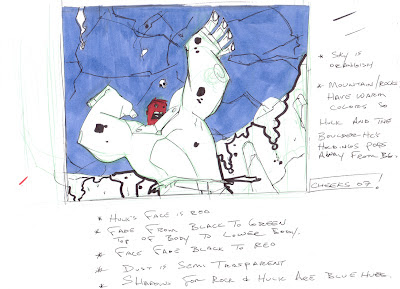 * SKY IS
ORANGISH
* MOUNTAIN/ROCKS
HAVE WARM
COLORS SO
HULK AND THE
BOULDER HE'S
HOLDINGS POPS
AWAY FROM BG.
CHEEKS 07!
* HULK'S FACE IS RED
* FADE FROM BLACK TO GREEN
TOP OF BODY TO LOWER BODY.
* FACE FADE BLACK TO RED
* DUST IS SEMI-TRASPARENT
* SHADING FOR ROCK & HULK ARE BLUE HUES.